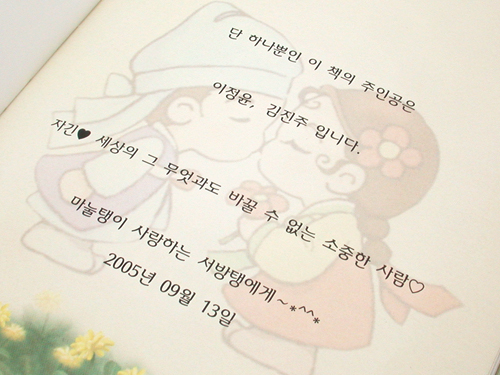 단 하나뿐인 이 책의 주인공은
이정윤, 김진주 입니다.
자긴♥ 세상의 그 무엇과도 바꿀 수 없는 소중한 사람♡
마눌탱이 사랑하는 서방탱에게~*^^*
2005년 09월 13일